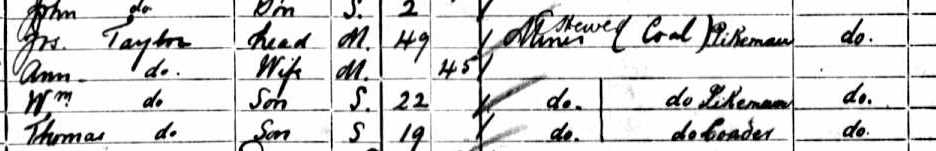 John do Son S. 2
Jos. Taylor head M. 49 Miner Hewer (Coal) Pikeman do.
Ann do. Wife M. 45
Wm do Son S. 22 do. do Pikeman do.
Thomas do Son S 19 do. do Loader do.